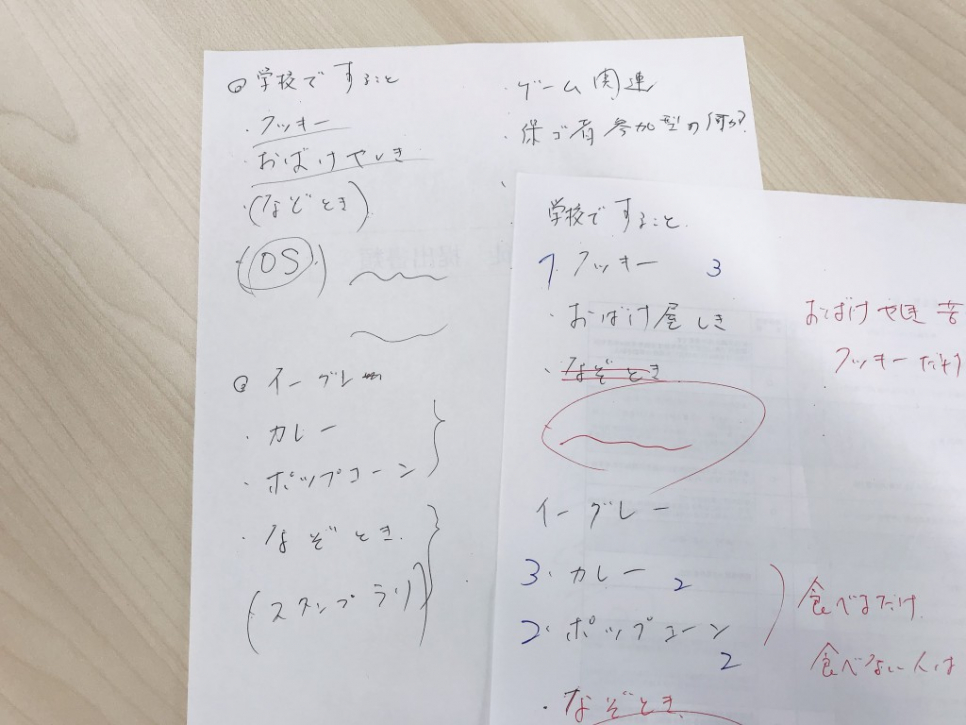 学校ですること
・クッキー
・おばけやしき
・(なぞとき)
(OS)
イーグレ
・カレー
・ポップコーン
・なぞとき
(スタンプラリ)
・ゲーム関連
・保ゴ者参加型の何か?
学校ですること
1. クッキー 3
・おばけ屋しき
・なぞとき
イーグレー
3. カレー 2
2. ポップコーン 2
・なぞとき
おばけやしき
クッキー
食べるだけ
食べない人は